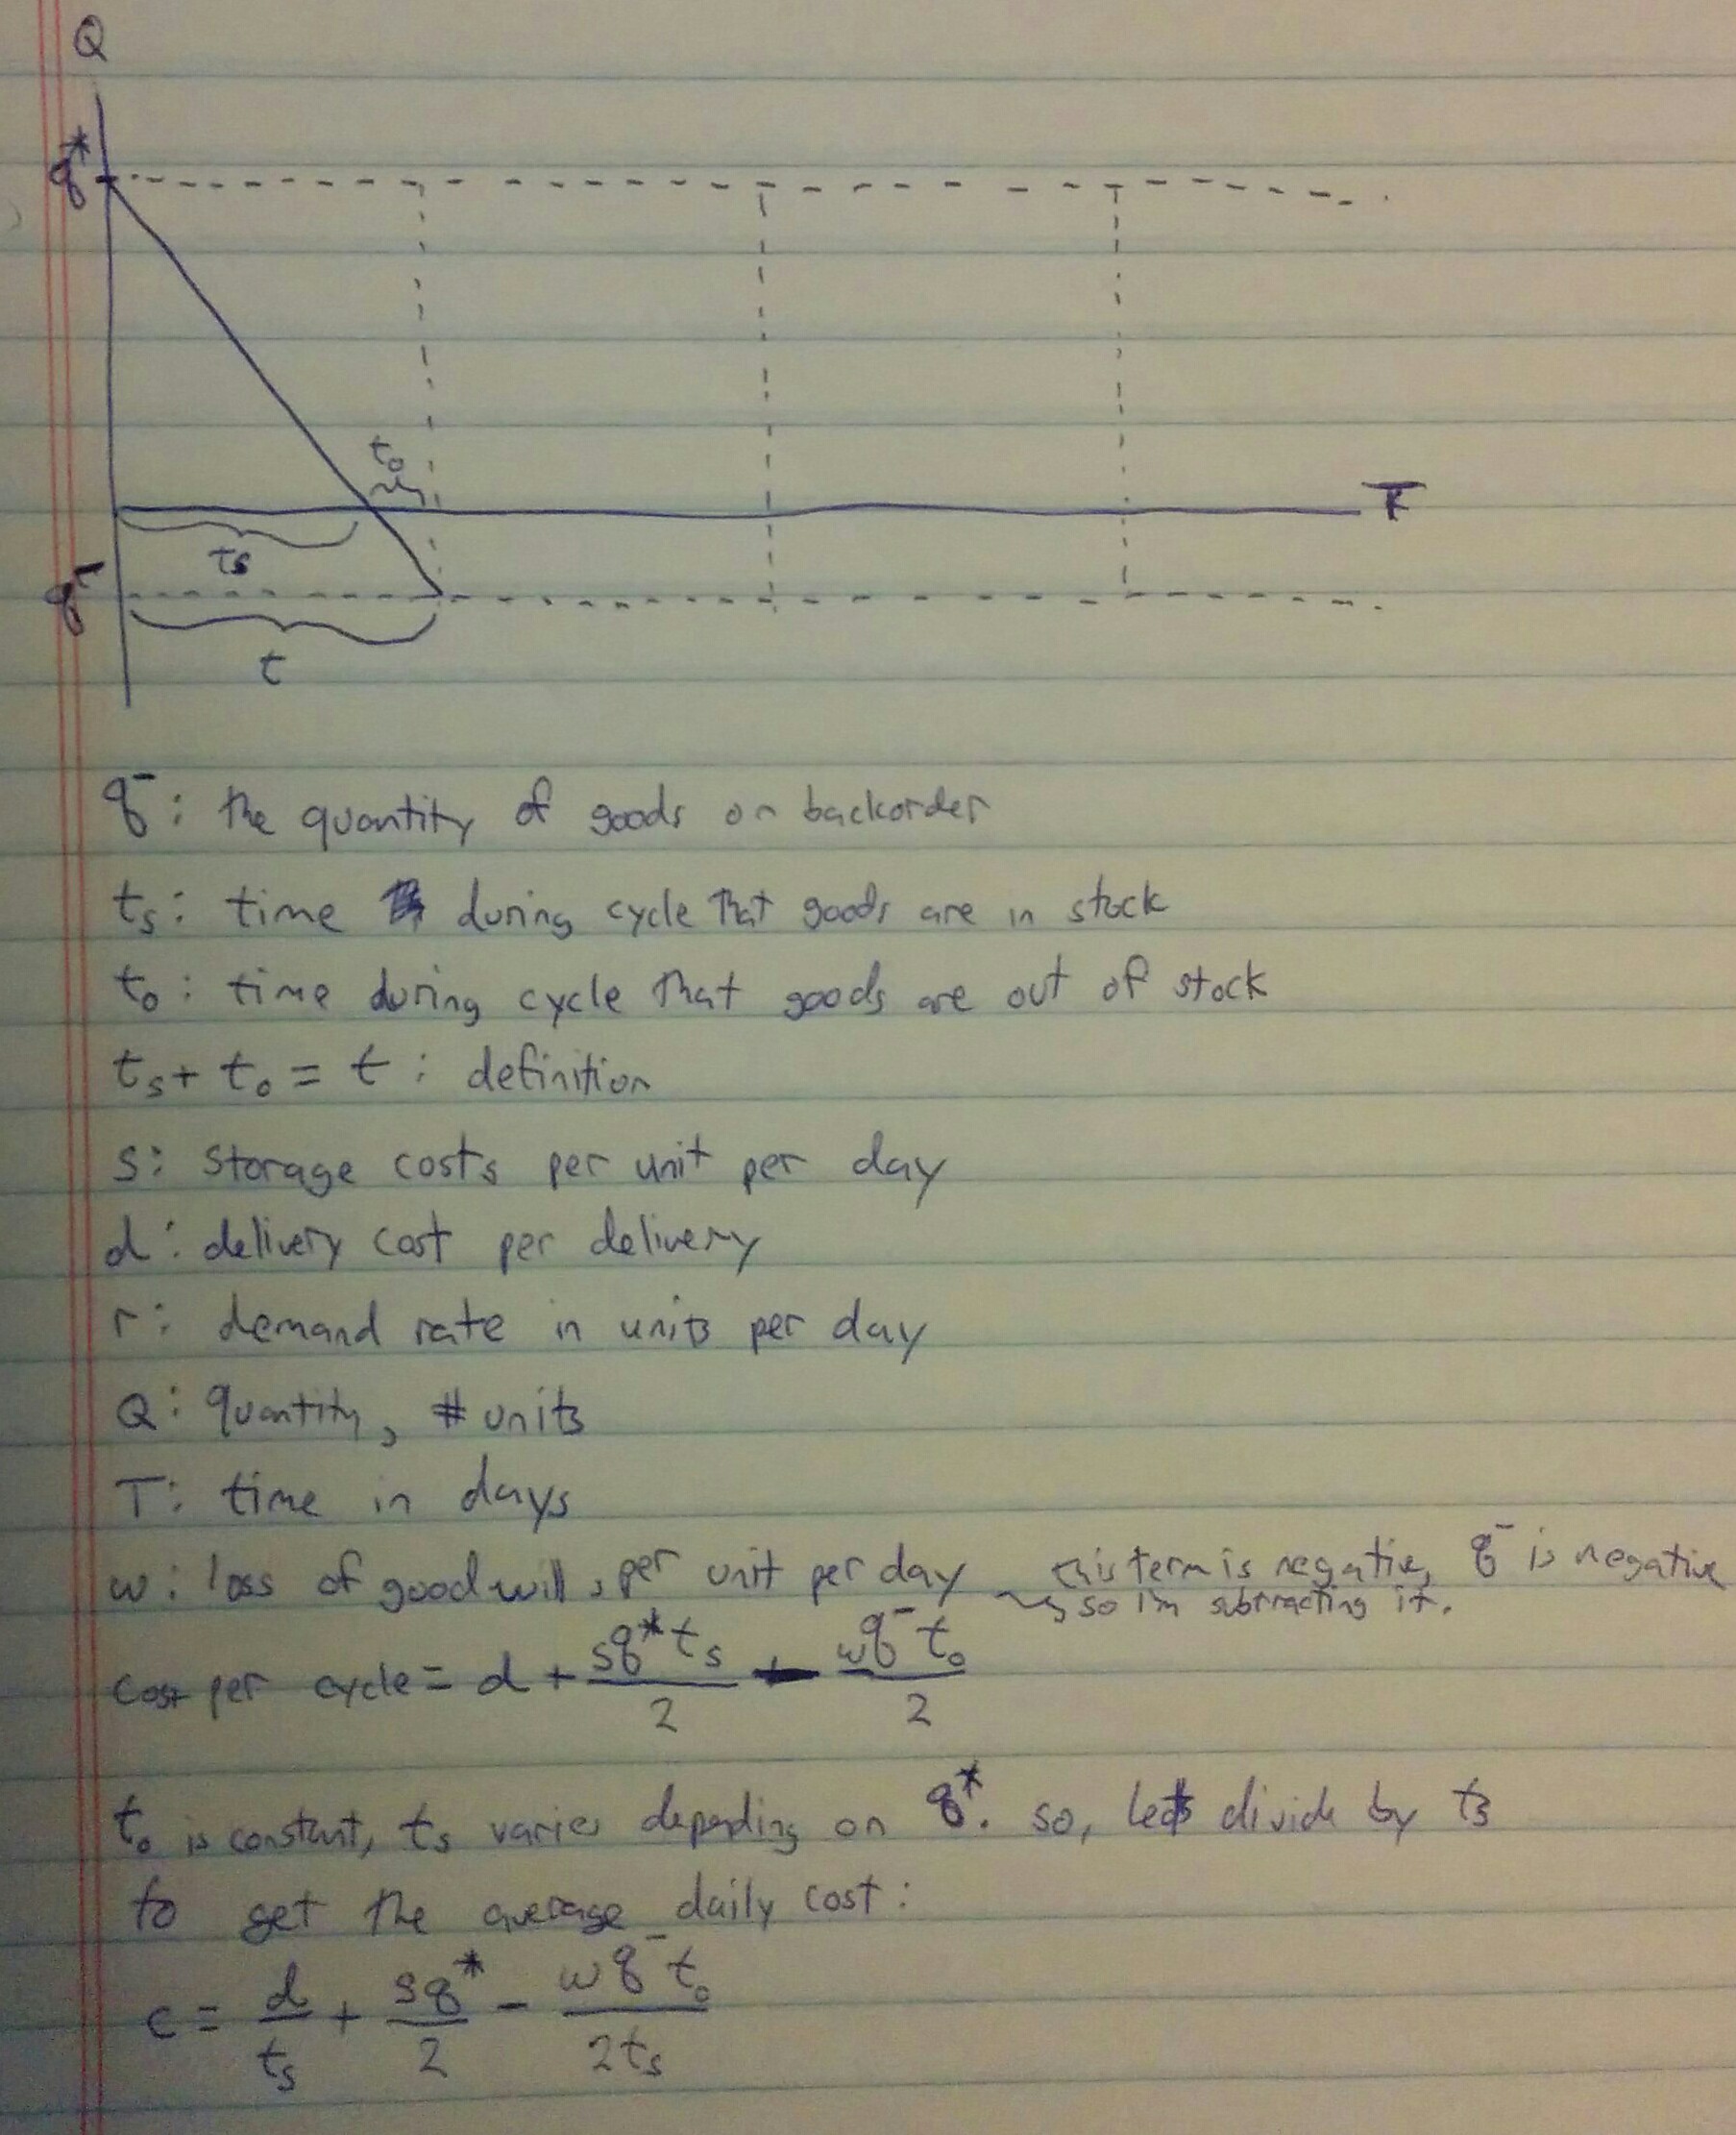 Q
q*
t₀
T
tₛ
q⁻
t
q⁻: the quantity of goods on backorder
tₛ: time during cycle that goods are in stock
t₀: time during cycle that goods are out of stock
tₛ + t₀ = t : definition
s: storage costs per unit per day
d: delivery cost per delivery
r: demand rate in units per day
Q: quantity, # units
T: time in days
w: loss of goodwill, per unit per day
this term is negative, q⁻ is negative
so i'm subtracting it.
cost per cycle = d + sq*tₛ/2 - wq⁻t₀/2
t₀ is constant, tₛ varies depending on q*. so, lets divide by tₛ
to get the average daily cost:
c = d/tₛ + sq*/2 - wq⁻t₀/2tₛ